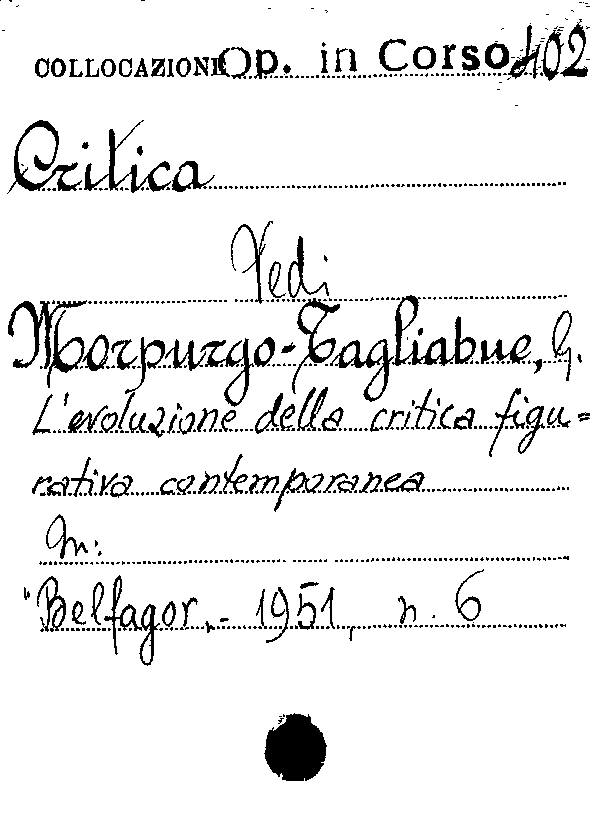 COLLOCAZIONE Op. in Corso 402
Critica
Vedi
Morpurgo-Tagliabue, G.
L'evoluzione della critica figu=
rativa contemporanea
In:
"Belfagor„- 1951, n. 6